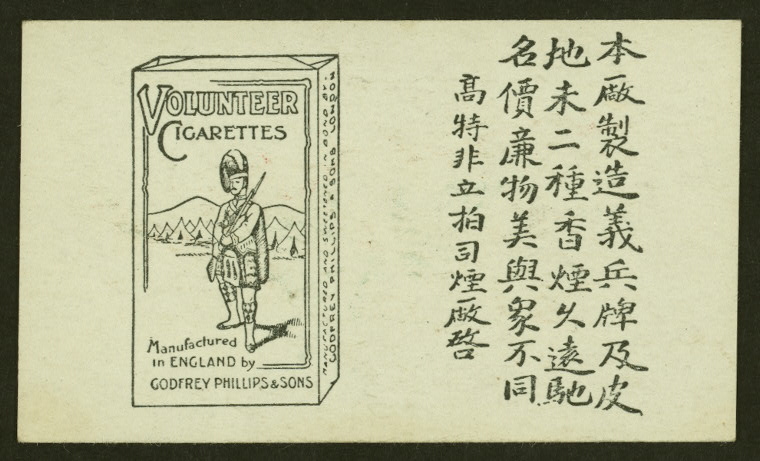 VOLUNTEER
CIGARETTES
Manufactured
in ENGLAND by
GODFREY PHILLIPS & SONS
GODFREY PHILLIPS & SONS LONDON
本廠製造義兵牌及皮
地未二種香煙久遠馳
名價廉物美與眾不同
高特非立拍司煙廠啓